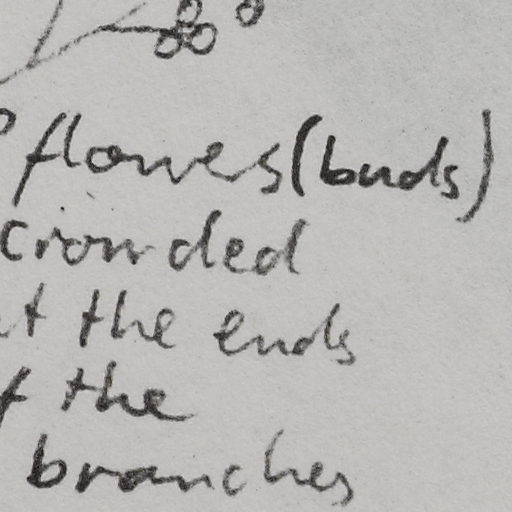 flowers (buds)
crowded
at the ends
of the
branches